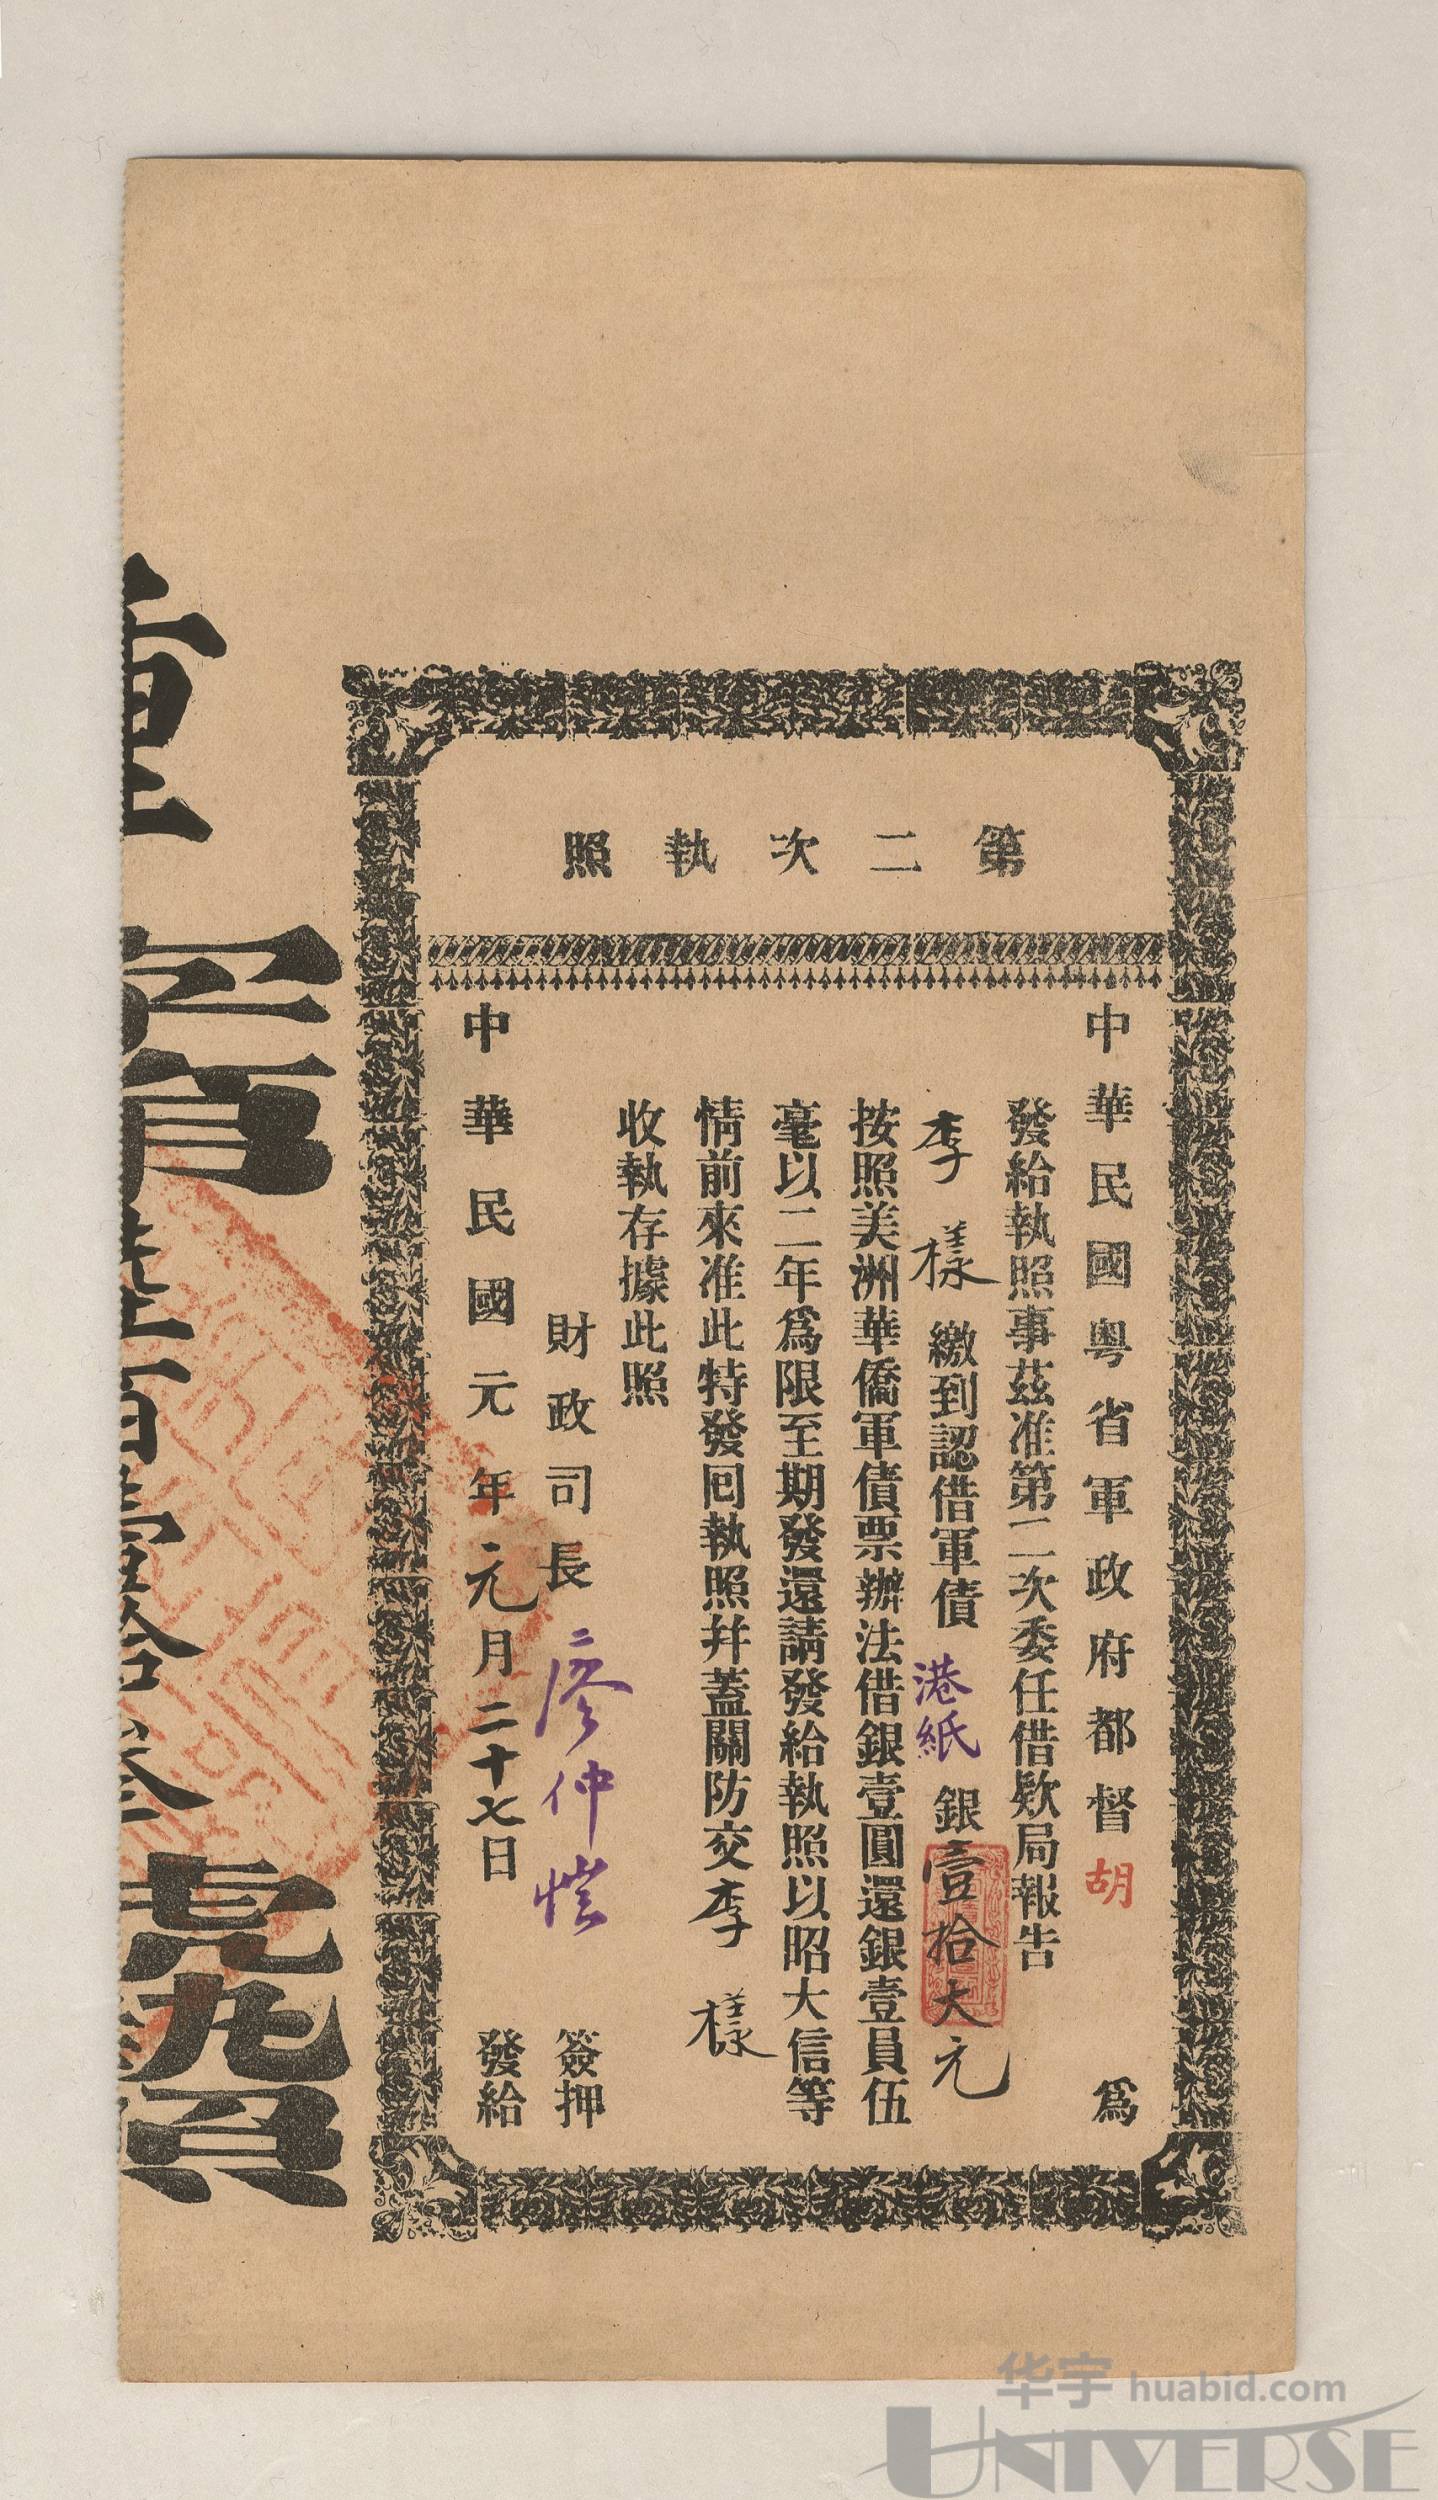 第二次執照
中華民國粤省軍政府都督胡 爲
發給執照事茲准第二次委任借欵局報告
李樣繳到認借軍債港紙銀壹拾大元
按照美洲華僑軍債票辦法借銀壹圓還銀壹員伍
毫以二年爲限至期發還請發給執照以昭大信等
情前來准此特發囘執照并蓋關防交李樣
收執存據此照
財政司長廖仲愷 簽押
中華民國元年元月二十七日 發給
华宇 huabid.com
UNIVERSE